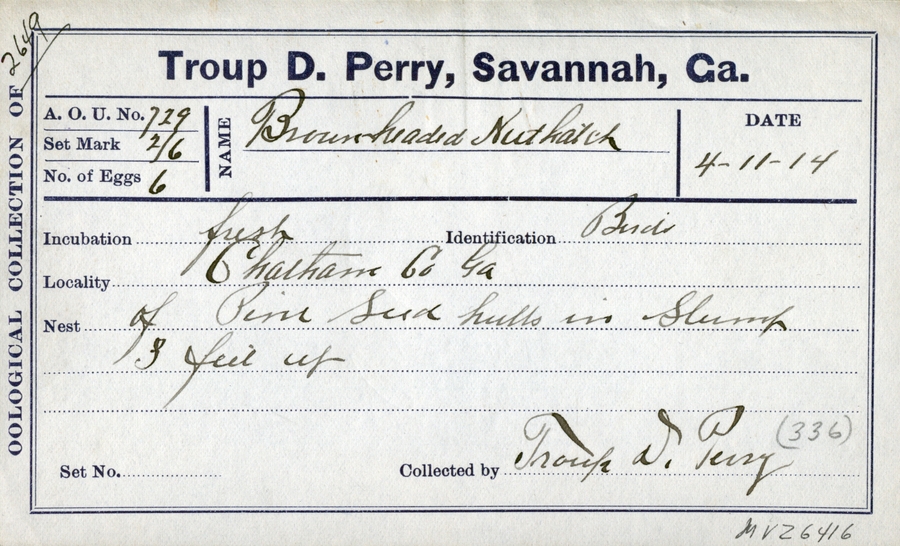 2649
OOLOGICAL COLLECTION OF
Troup D. Perry, Savannah, Ga.
A. O. U. No. 729
Set Mark 2/6
No. of Eggs 6
NAME Brown headed Nuthatch
DATE
4-11-14
Incubation fresh Identification Birds
Locality Chatham Co Ga
Nest of Pine Seed hulls in Stump
3 feet up
Set No.
Collected by Troup D. Perry (336)
MVZ 6416